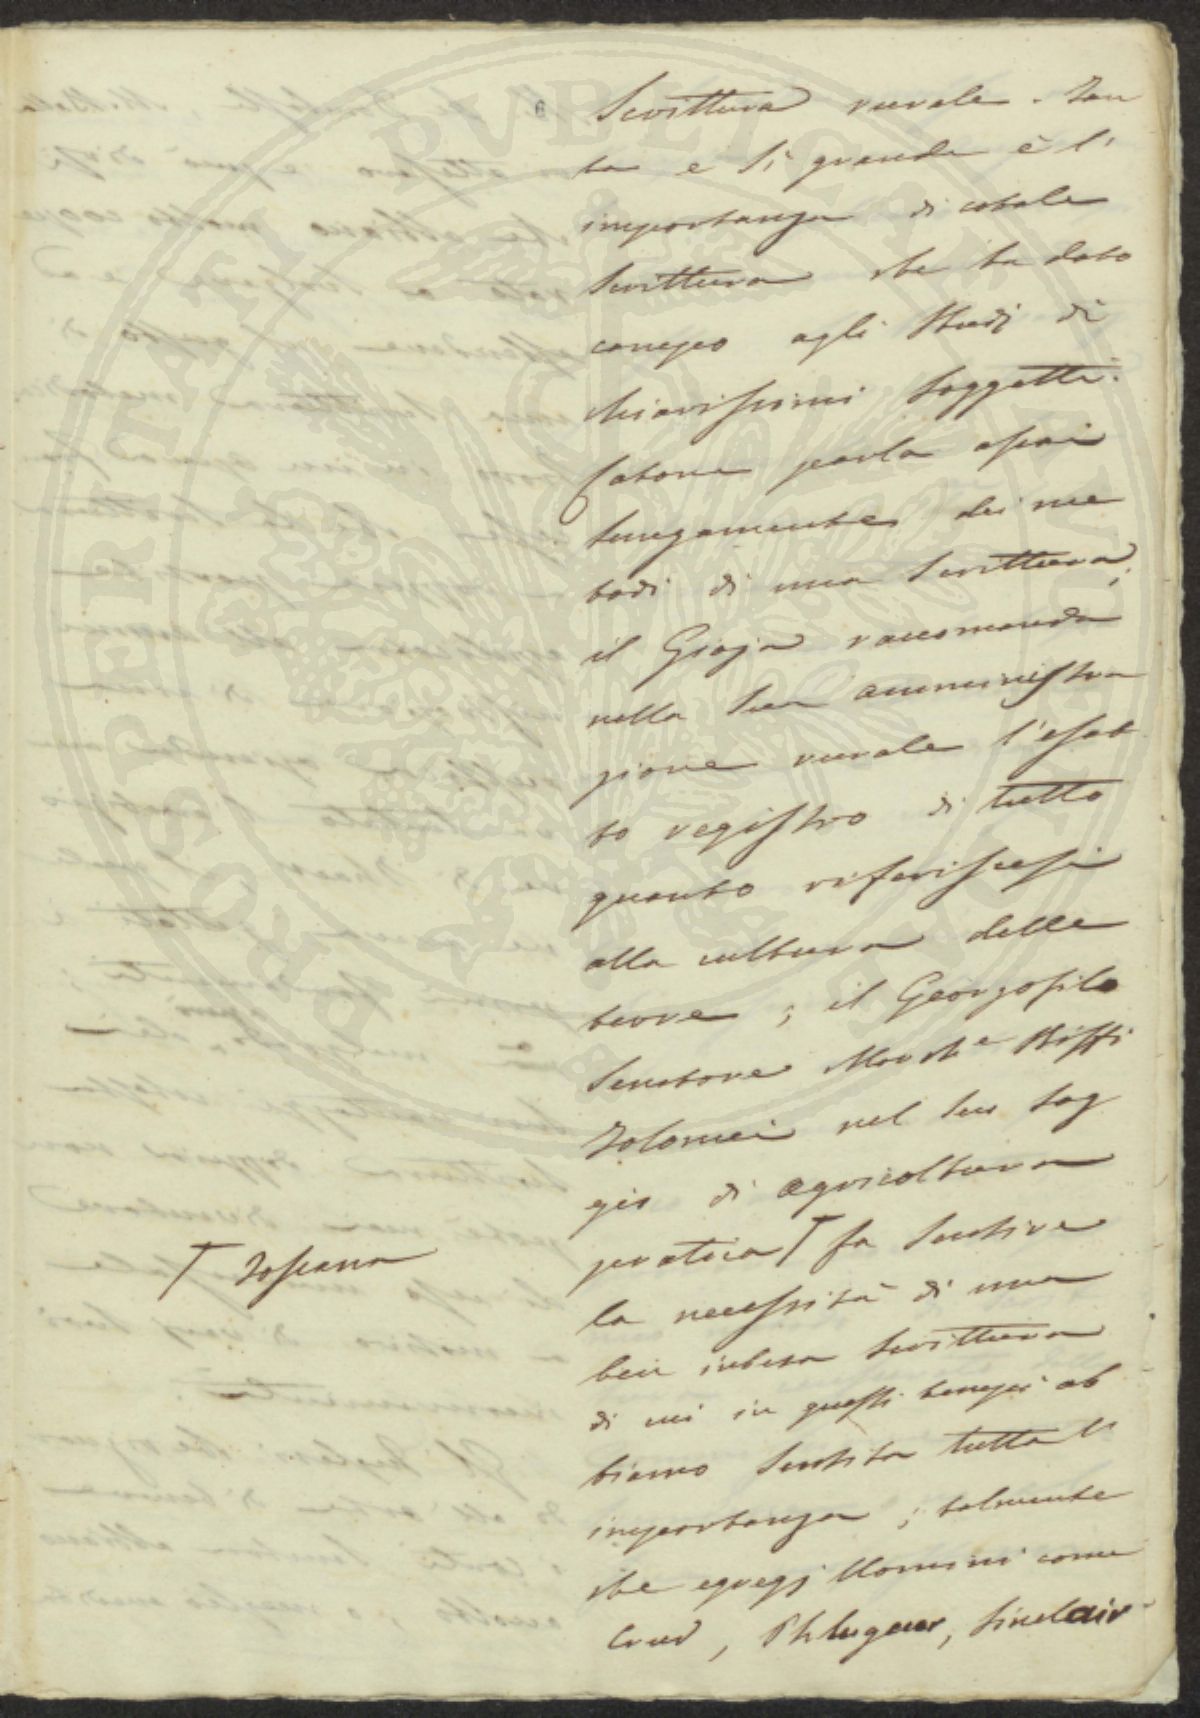 6
Scrittura rurale. Tan
ta e sì grande è l'
importanza di cotale
Scrittura che ha dato
campo agli Studj di
chiarissimi Soggetti.
Catone parla assai
lungamente dei me
todi di una Scrittura,
il Gioja raccomanda
nella sua amministra
zione rurale l'esat
to registro di tutto
quanto riferiscesi
alla cultura delle
terre; il Georgofilo
Senatore March.e Biffi
Tolomei nel suo Sag
gio di agricoltura
pratica T fa sentire
T Toscana
la necessità di una
ben intesa Scrittura
di cui in questi tempi ab
biamo sentita tutta l'
importanza; talmente
che egregj Uomini come
Crud, Phluguer, Sinclair
PROSPERITATI PVBLICAE AVGENDAE